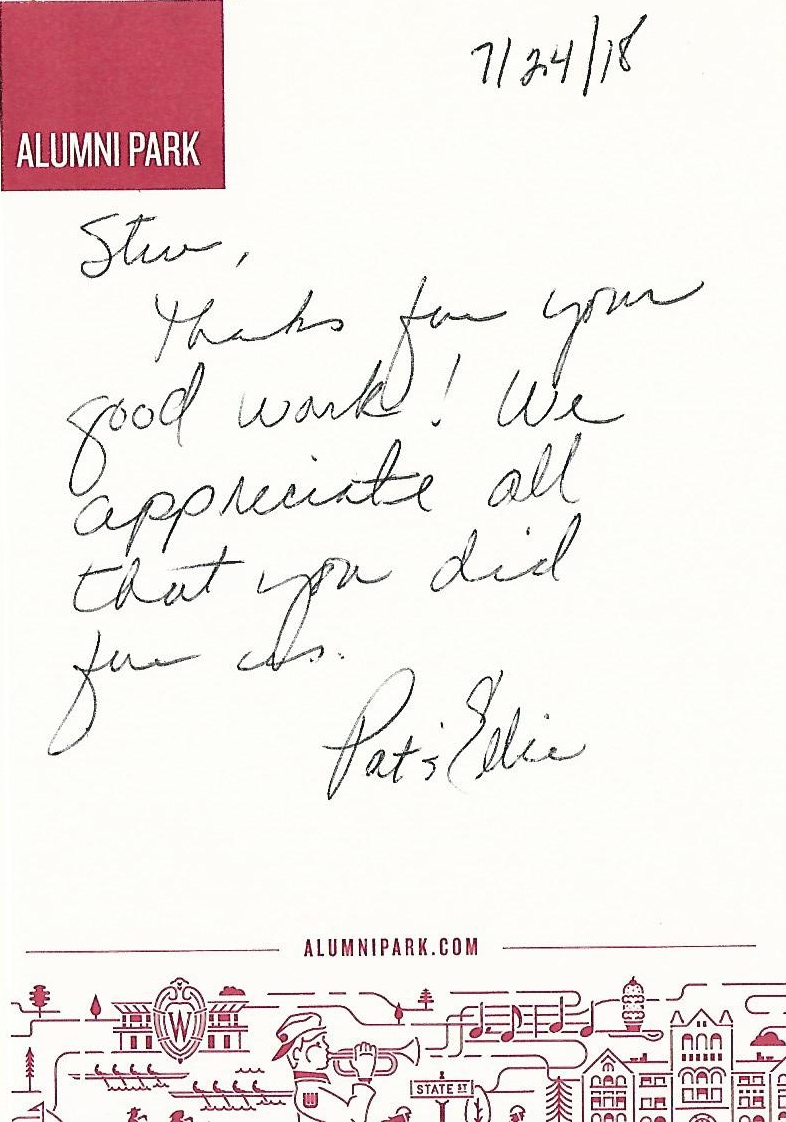 7/24/18
ALUMNI PARK
Stew,
Thanks for your
good work! We
appreciate all
that you did
for us.
Pat & Ellie
ALUMNIPARK.COM
W
STATE ST